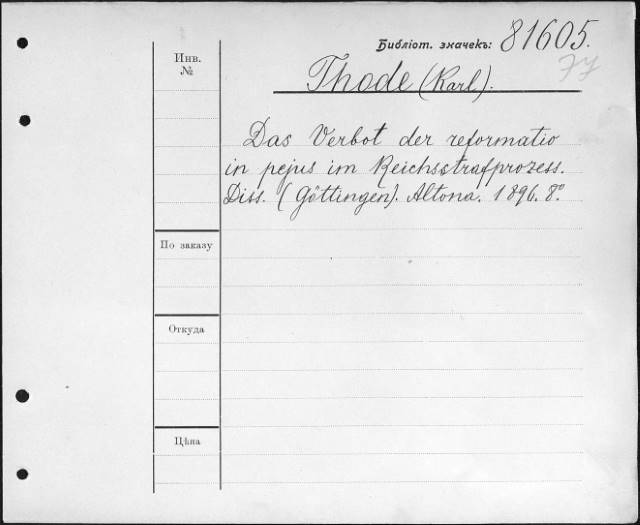 Библіот. значекъ: 81605.
77
Инв.
№
Thode (Karl).
Das Verbot der reformatio
in pejus im Reichsstrafprozess.
Diss. (Göttingen). Altona. 1896. 8º
По заказу
Откуда
Цѣна